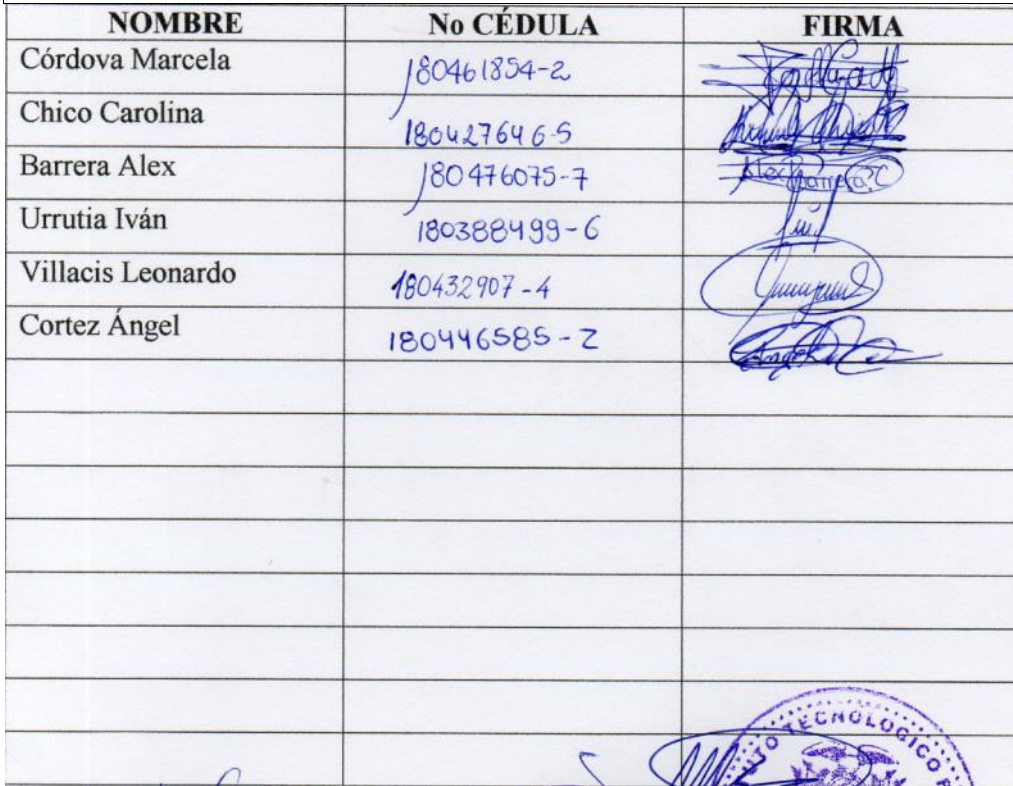 NOMBRE No CÉDULA FIRMA
Córdova Marcela 180461854-2
Chico Carolina 180427646-5
Barrera Alex 180476075-7 Alex Barrera C
Urrutia Iván 180388499-6
Villacis Leonardo 180432907-4
Cortez Ángel 180446585-2
TECNOLOGICO